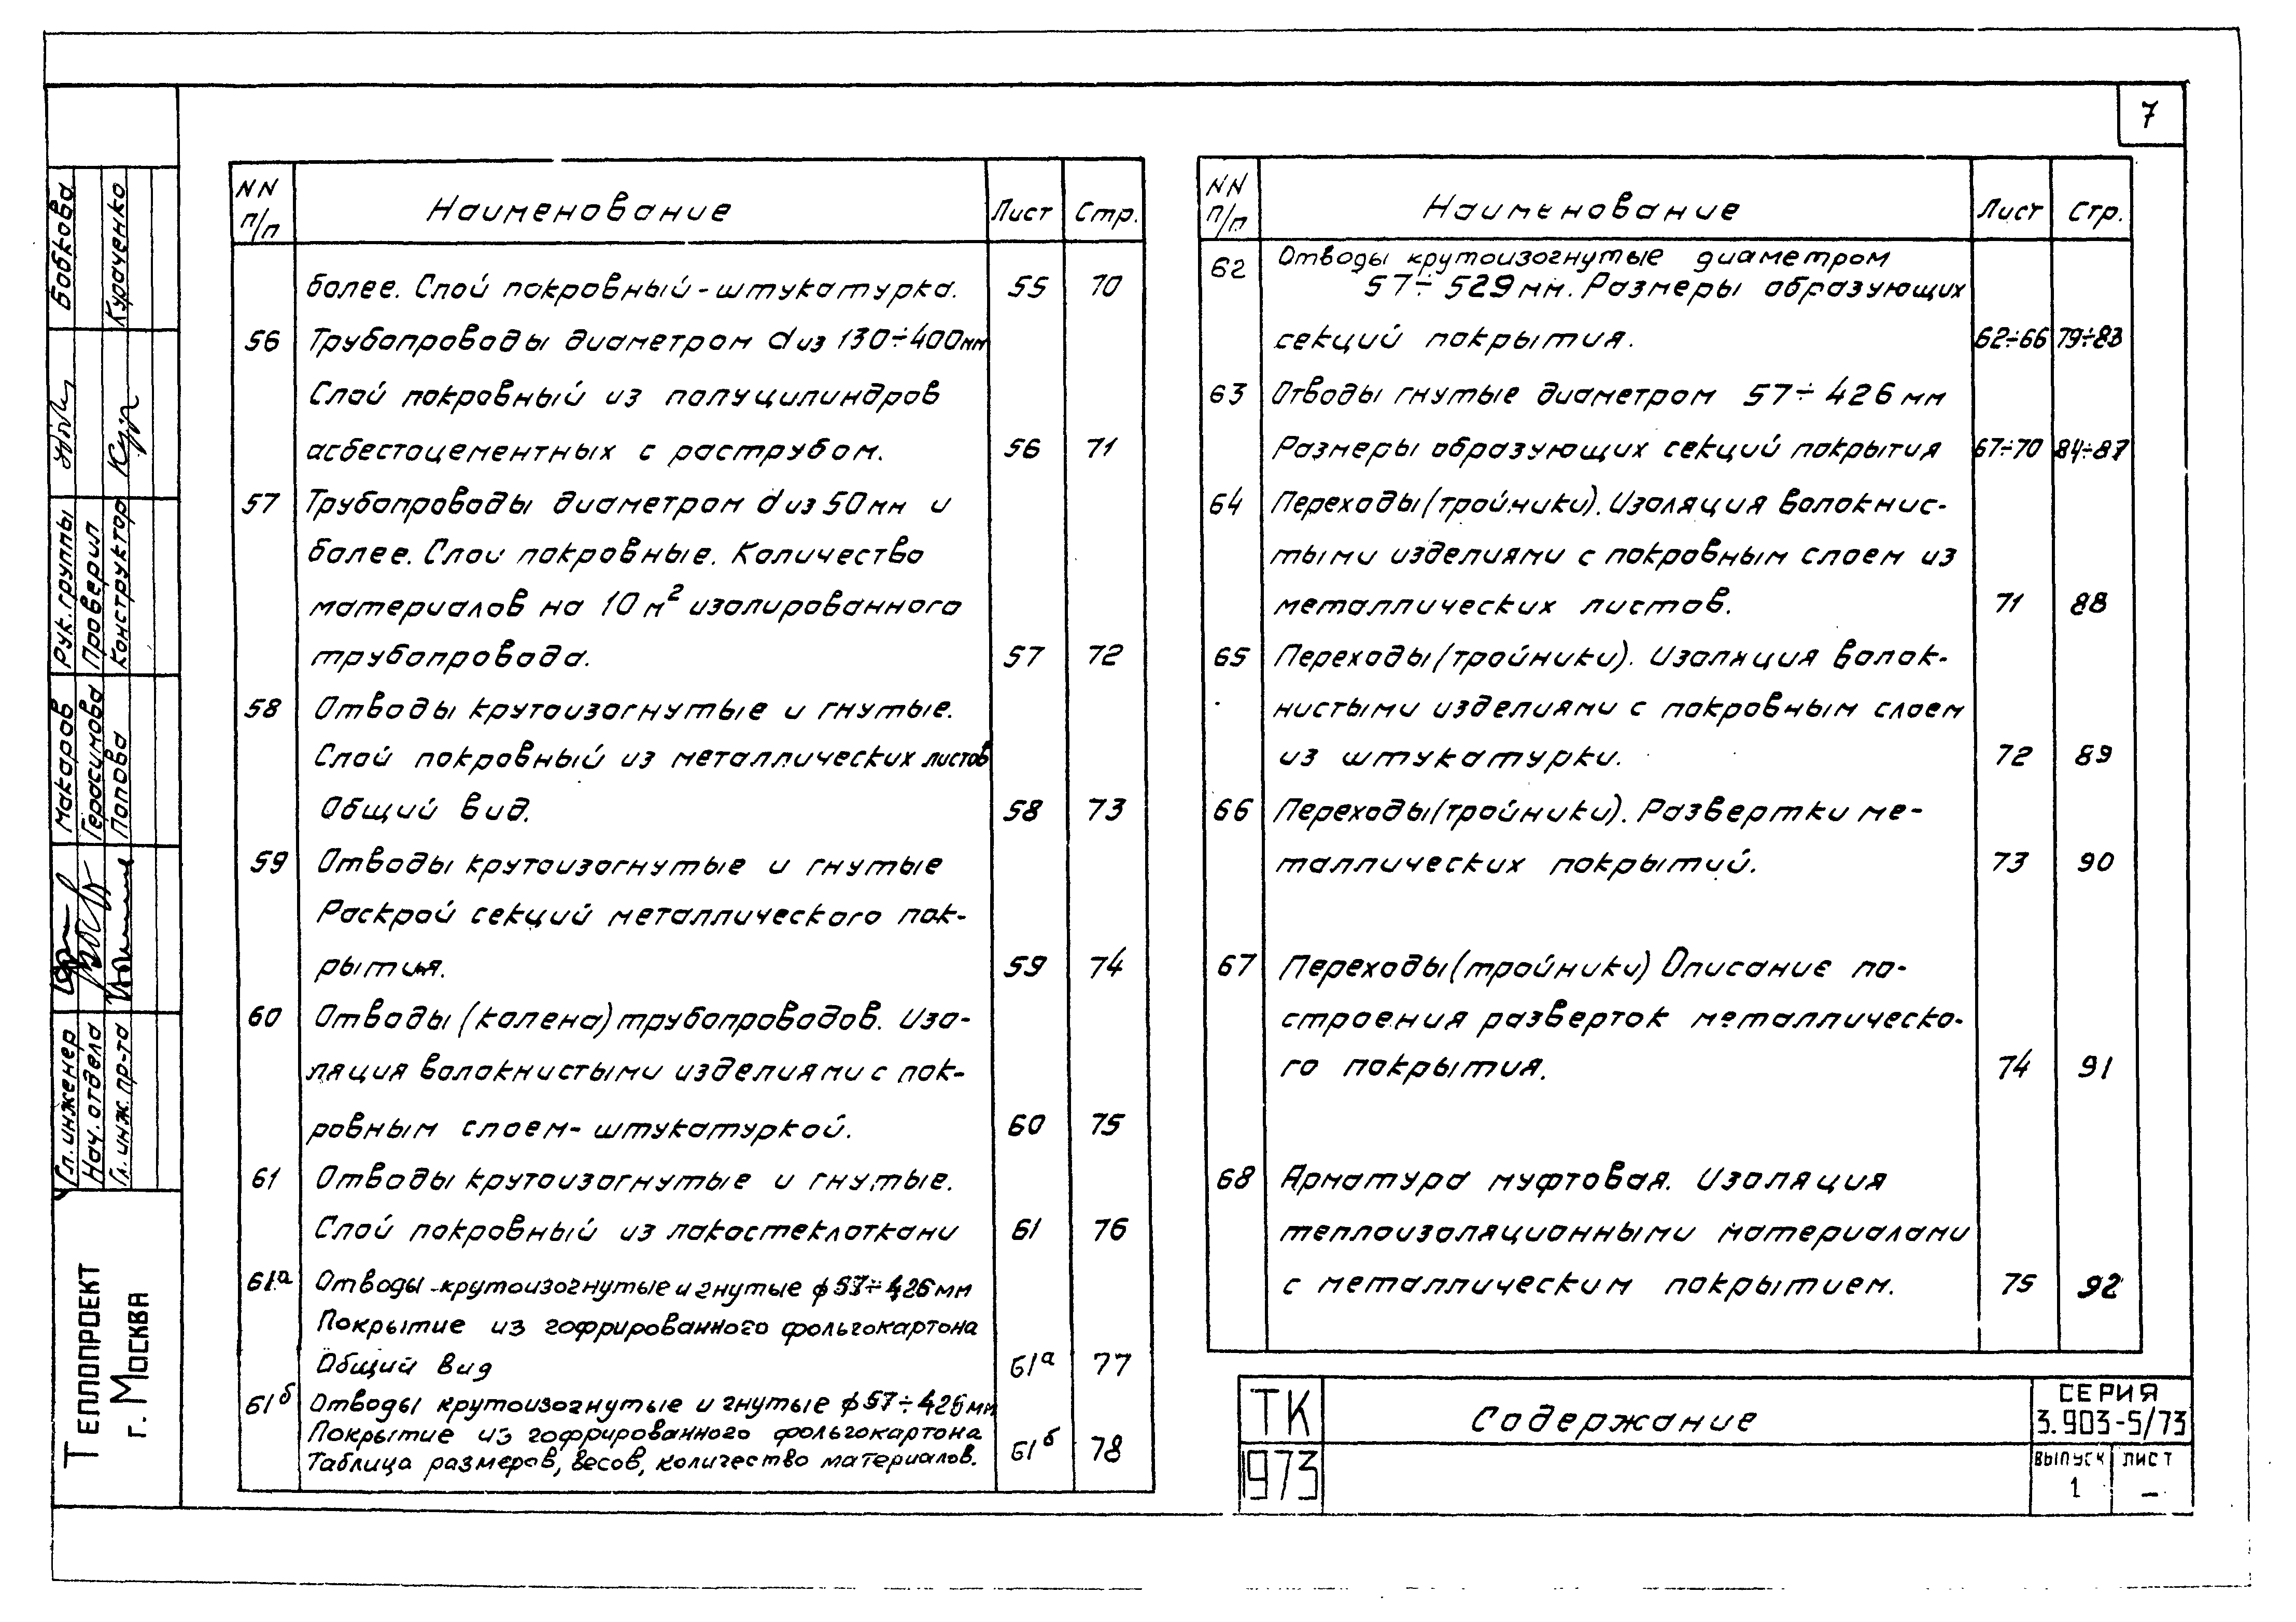 7
NN п/п Наименование Лист Стр.
более. Слой покровный - штукатурка. 55 70
56 Трубопроводы диаметром dиз 130÷400мм
Слой покровный из полуцилиндров
асбестоцементных с раструбом. 56 71
57 Трубопроводы диаметром dиз 50мм и
более. Слои покровные. Количество
материалов на 10м² изолированного
трубопровода. 57 72
58 Отводы крутоизогнутые и гнутые.
Слой покровный из металлических листов
Общий вид. 58 73
59 Отводы крутоизогнутые и гнутые
Раскрой секций металлического пок-
рытия. 59 74
60 Отводы (колена) трубопроводов. Изо-
ляция волокнистыми изделиями с пок-
ровным слоем - штукатуркой. 60 75
61 Отводы крутоизогнутые и гнутые.
Слой покровный из лакостеклоткани 61 76
61а Отводы крутоизогнутые и гнутые ф57÷426мм
Покрытие из гофрированного фольгокартона
Общий вид 61а 77
61б Отводы крутоизогнутые и гнутые ф57÷426мм
Покрытие из гофрированного фольгокартона
Таблица размеров, весов, количество материалов. 61б 78
NN п/п Наименование Лист Стр.
62 Отводы крутоизогнутые диаметром
57÷529мм. Размеры образующих
секций покрытия. 62÷66 79÷83
63 Отводы гнутые диаметром 57÷426мм
Размеры образующих секций покрытия 67÷70 84÷87
64 Переходы (тройники). Изоляция волокнис-
тыми изделиями с покровным слоем из
металлических листов. 71 88
65 Переходы (тройники). Изоляция волок-
нистыми изделиями с покровным слоем
из штукатурки. 72 89
66 Переходы (тройники). Развертки ме-
таллических покрытий. 73 90
67 Переходы (тройники) Описание по-
строения разверток металлическо-
го покрытия. 74 91
68 Арматура муфтовая. Изоляция
теплоизоляционными материалами
с металлическим покрытием. 75 92
ТК
1973
Содержание
СЕРИЯ
3.903-5/73
ВЫПУСК ЛИСТ
1 –
Гл. инженер Макаров Рук. группы Бобкова
Нач. отдела Герасимова Проверил
Гл. инж. пр-та Попова Конструктор Кураченко
ТЕПЛОПРОЕКТ
г. МОСКВА